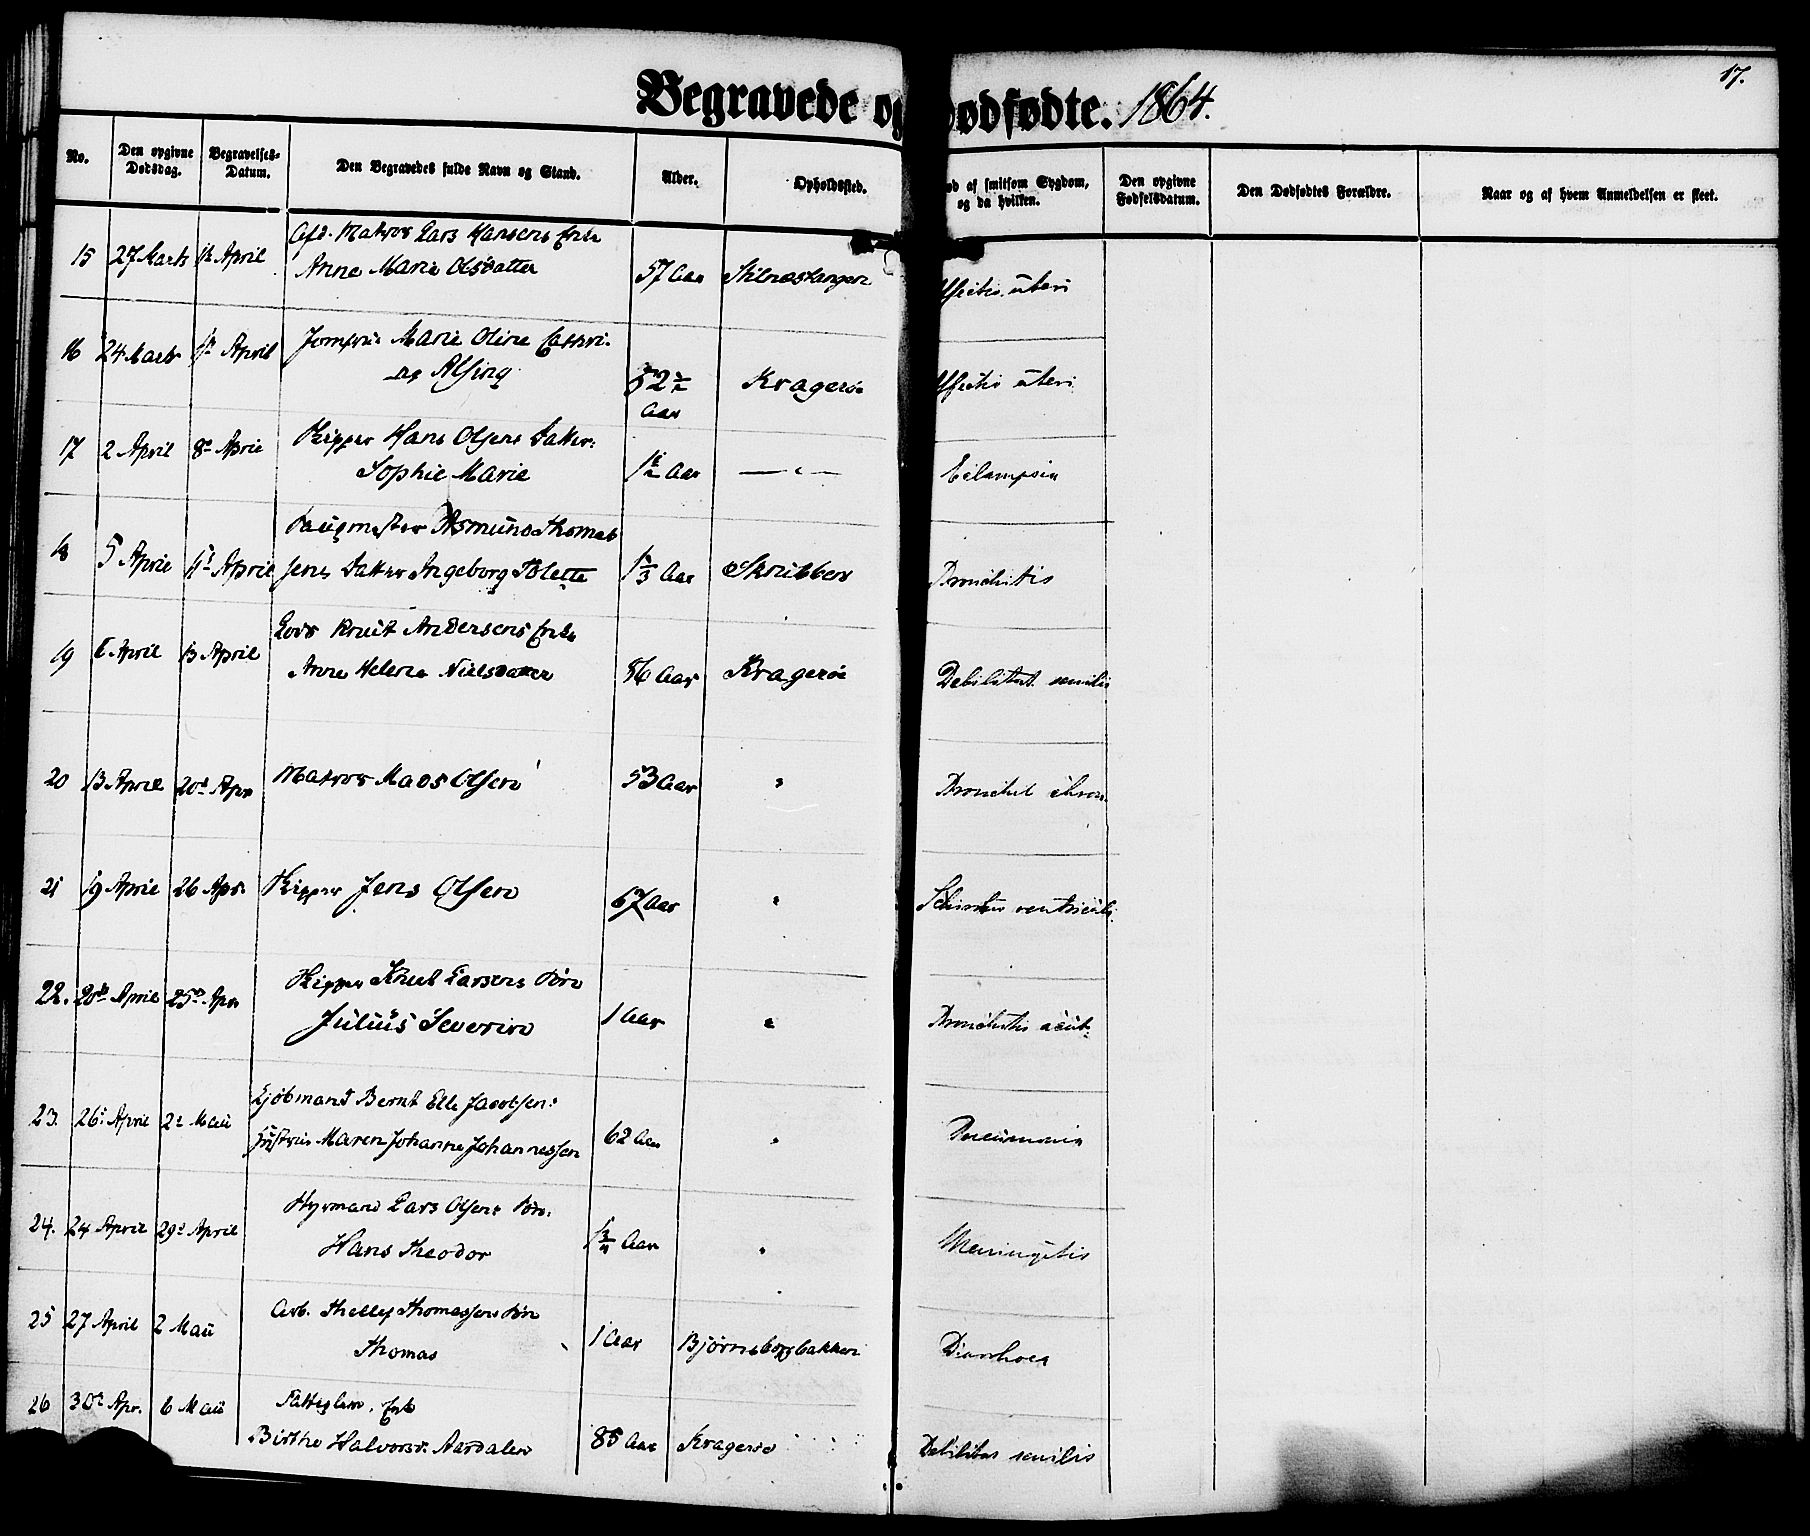 17.
Begravede og dødfødte. 1864.
No. Den opgivne Dødsdag. Begravelses-Datum. Den Begravedes fulde Navn og Stand. Alder. Opholdssted. af smitsom Sygdom, og da hvilken. Den opgivne Fødselsdatum. Den Dødfødtes Forældre. Naar og af hvem Anmeldelsen er skeet.
15 27 Marts April Matros Lars Hansens Enke
Anne Marie Olsdatter 57 Aar uteri
16 24 Marts April Jomfru Marie Oline Cathri-
ne Alsing 52 ½ Aar Kragerøe uteri
17 2 April 8 April Skipper Hans Olsens Datter:
Sophie Marie 1½ Aar — " — Eclampsia
18 5 April 11 April Asmund Thomas
sens Datter Ingeborg Tolette Aar Skrubben Bronchitis
19 6 April 13 April Lods Knut Andersens Enke
Anne Helene Nielsdatter 86 Aar Kragerøe Debilitat. senilis
20 13 April 20d Apr Matros Mads Olsen 53 Aar " Bronchit chron.
21 19 April 26 Apr. Skipper Jens Olsen 67 Aar " Schirrhus ventriculi.
22. 20de April 25de Apr Skipper Knut Larsens Søn
Julius Severin 1 Aar " Bronchitis acut.
23. 26: April 2: Maii Kjøbmand Bernt Elle Jacobsens
Hustrue Maren Johanne Johannessen 62 Aar " Pneumonia
24. 24 April 29d April Styrmand Lars Olsens Søn.
Hans Theodor 1¾ Aar " Meningitis
25 27 April 2 Maii Arb. Thellef Thomassens Søn
Thomas 1 Aar Bjørnsborgbakken Diarrhoea
26 30te Apr. 6 Maii Fattiglem. Enke
Birthe Halvorsd. Aasdalen 85 Aar Kragerøe Debilitas senilis